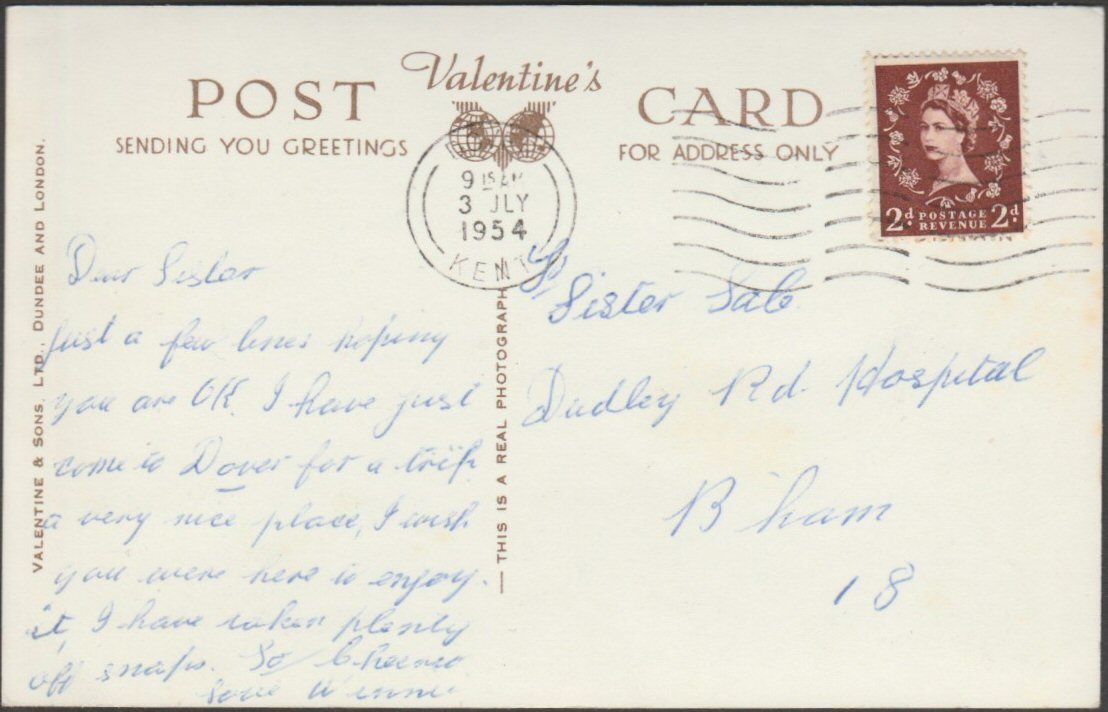 POST Valentine's CARD
SENDING YOU GREETINGS
FOR ADDRESS ONLY
2d POSTAGE REVENUE 2d
9 15 AM
3 JLY
1954
KENT
VALENTINE & SONS, LTD., DUNDEE AND LONDON.
THIS IS A REAL PHOTOGRAPH
Dear Sister
Just a few lines hoping
you are OK. I have just
come to Dover for a trip
a very nice place, I wish
you were here to enjoy.
it, I have taken plenty
off snaps. So Cheerio
Sister
Dudley Rd. Hospital
B'ham
18